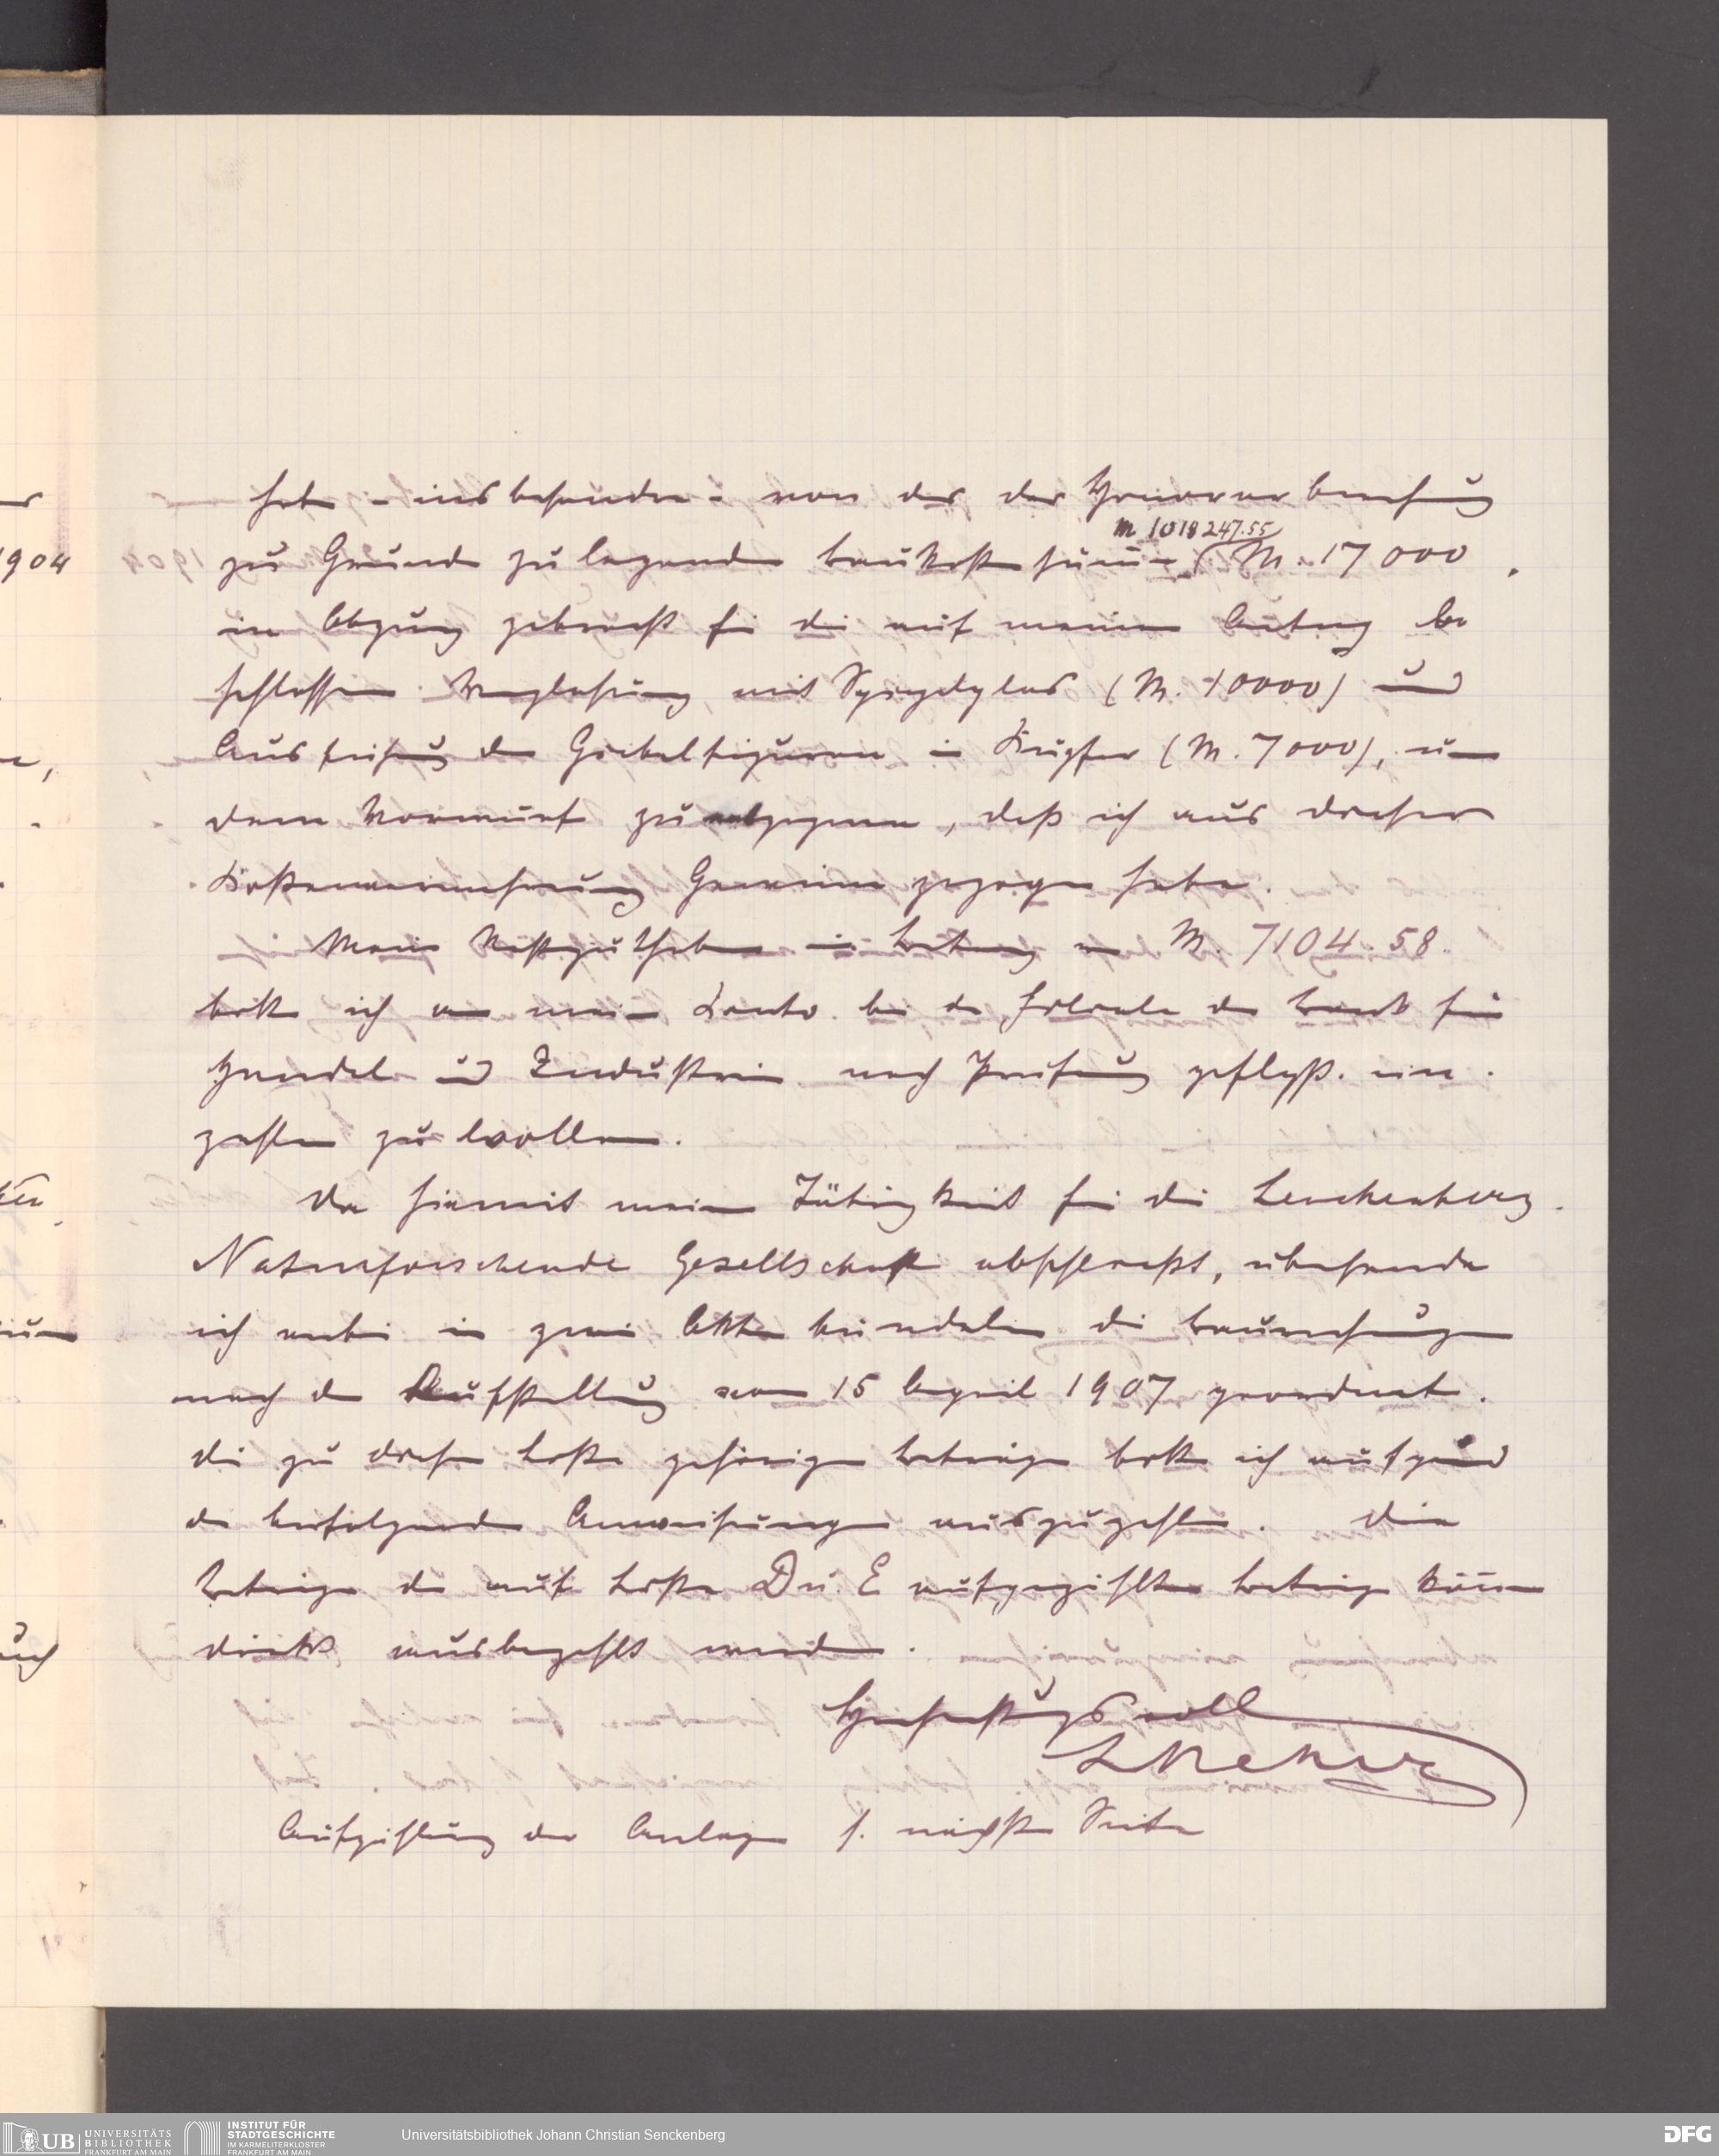 habe - insbesondere - von der der Honorarberechnung
M 1018247.55
zu Grunde zu legenden Baukostensumme M. 17000
in Abzug gebracht für die auf meinen Antrag be
schlossene Verglasung mit Spiegelglas (M. 10000) und
Ausführung der Giebelfiguren in Kupfer (M. 7000), um
dem Vorwurf zu entgegnen, daß ich aus dieser
Kostenvermehrung Gewinn gezogen habe.
Mein Restguthaben im Betrag von M. 7104.58
bitte ich an mein Conto bei der Filiale der Bank für
Handel und Industrie nach Prüfung gefligst. ein
zahlen zu wollen.
Da hiermit meine Tätigkeit für die Senckenberg.
Naturforschende Gesellschaft abschließt, übersende
ich anbei in zwei Aktenbündeln die Baurechnungen
nach der Aufstellung vom 15 April 1907 geordnet.
Die zu dieser Liste gehörigen Beträge bitte ich aufgrund
der beifolgenden Anweisungen auszuzahlen. Die
Beträge der auf Liste D u. E aufgezählten Beträge können
direkt ausbezahlt werden.
Hochachtungsvoll
LNeher
Aufzählung der Anlagen s. nächste Seite
1904
UB UNIVERSITÄTS
BIBLIOTHEK
FRANKFURT AM MAIN
INSTITUT FÜR
STADTGESCHICHTE
IM KARMELITERKLOSTER
FRANKFURT AM MAIN
Universitätsbibliothek Johann Christian Senckenberg
DFG